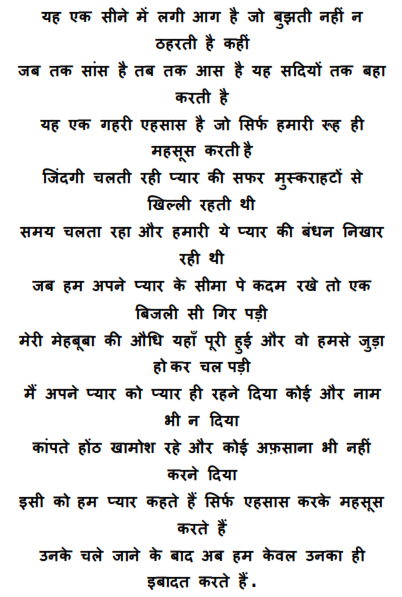 यह एक सीने में लगी आग है जो बुझती नहीं न
ठहरती है कहीं
जब तक सांस है तब तक आस है यह सदियों तक बहा
करती है
यह एक गहरी एहसास है जो सिर्फ हमारी रूह ही
महसूस करती है
जिंदगी चलती रही प्यार की सफर मुस्कराहटों से
खिल्ली रहती थी
समय चलता रहा और हमारी ये प्यार की बंधन निखार
रही थी
जब हम अपने प्यार के सीमा पे कदम रखे तो एक
बिजली सी गिर पड़ी
मेरी मेहबूबा की औधि यहाँ पूरी हुई और वो हमसे जुड़ा
हो कर चल पड़ी
मैं अपने प्यार को प्यार ही रहने दिया कोई और नाम
भी न दिया
कांपते होंठ खामोश रहे और कोई अफ़साना भी नहीं
करने दिया
इसी को हम प्यार कहते हैं सिर्फ एहसास करके महसूस
करते हैं
उनके चले जाने के बाद अब हम केवल उनका ही
इबादत करते हैं .